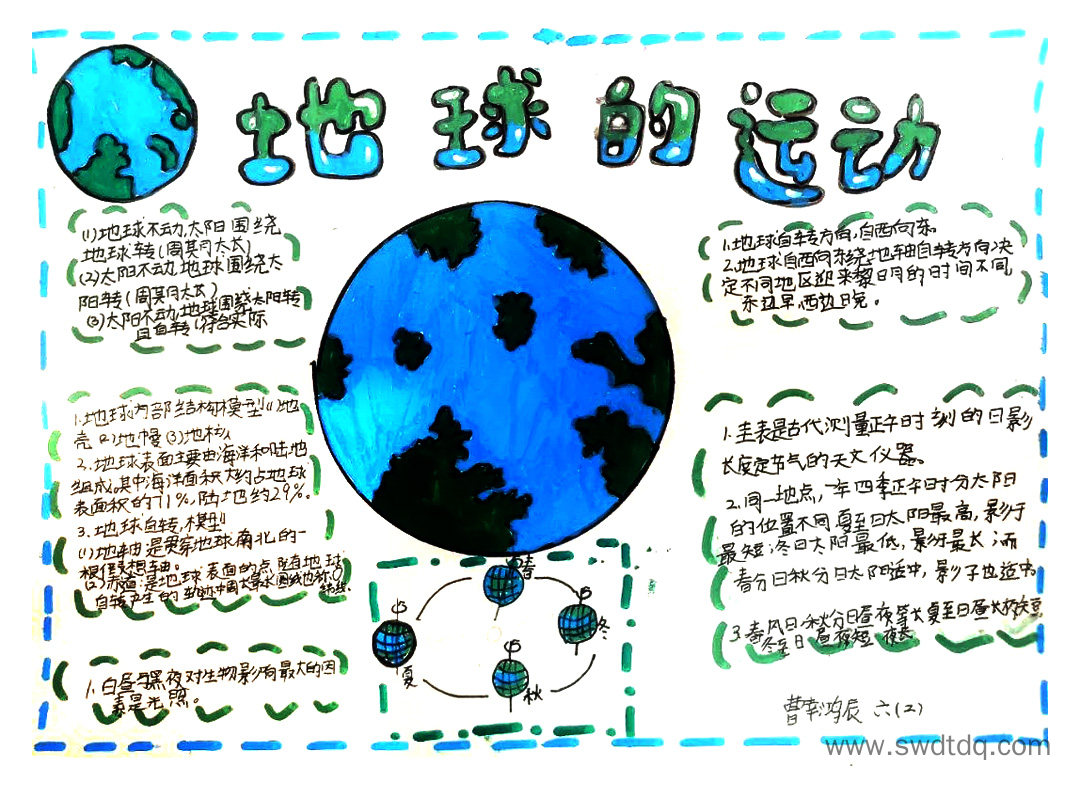 地球的运动
(1)地球不动,太阳围绕
地球转(周期太长)
(2)太阳不动,地球围绕太
阳转(周期太长)
(3)太阳不动,地球围绕太阳转
且自转(符合实际
1.地球自转方向,自西向东
2.地球自西向东绕地轴自转方向决
定不同地区迎来黎明的时间不同
东边早,西边晚。
1.地球内部结构模型(1)地
壳(2)地幔(3)地核
2.地球表面主要由海洋和陆地
组成,其中海洋面积大约占地球
表面积的71%,陆地约29%。
3.地球自转,模型
(1)地轴是贯穿地球南北的一
根假想轴。
是地球表面的点随地球
自转产生的
1.圭表是古代测量正午时刻的日影
长度定节气的天文仪器。
2.同一地点,一年四季正午时分太阳
的位置不同,夏至日太阳最高,影子
最短;冬日太阳最低,影子最长;而
春分日秋分日太阳适中,影子也适中。
3.春风日秋分日昼夜等长夏至日昼长夜短
冬至日昼短夜长
1.白昼与黑夜对生物影有最大的因
素是光照。
春
冬
夏
秋
鸿辰 六(2)
www.swdtdq.com